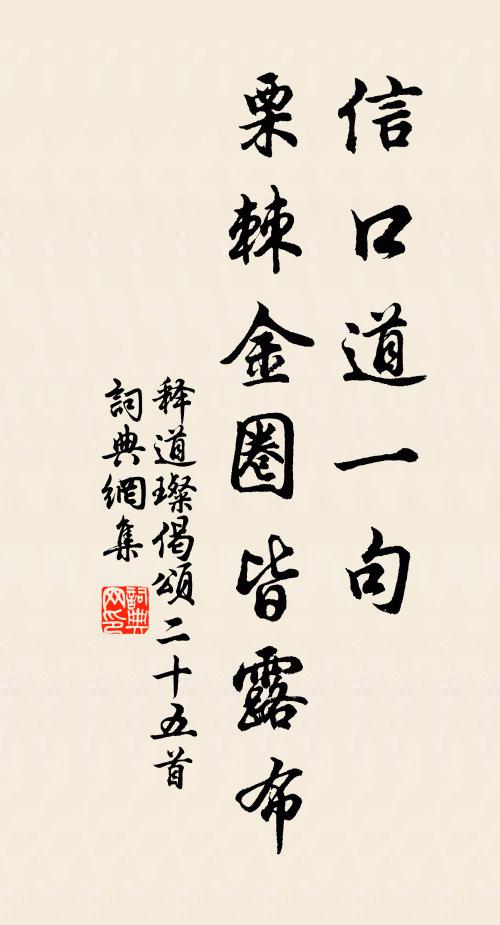 信口道一句
栗棘金圈皆露布
释道璨偈頌二十五首
詞典網集
詞典网印